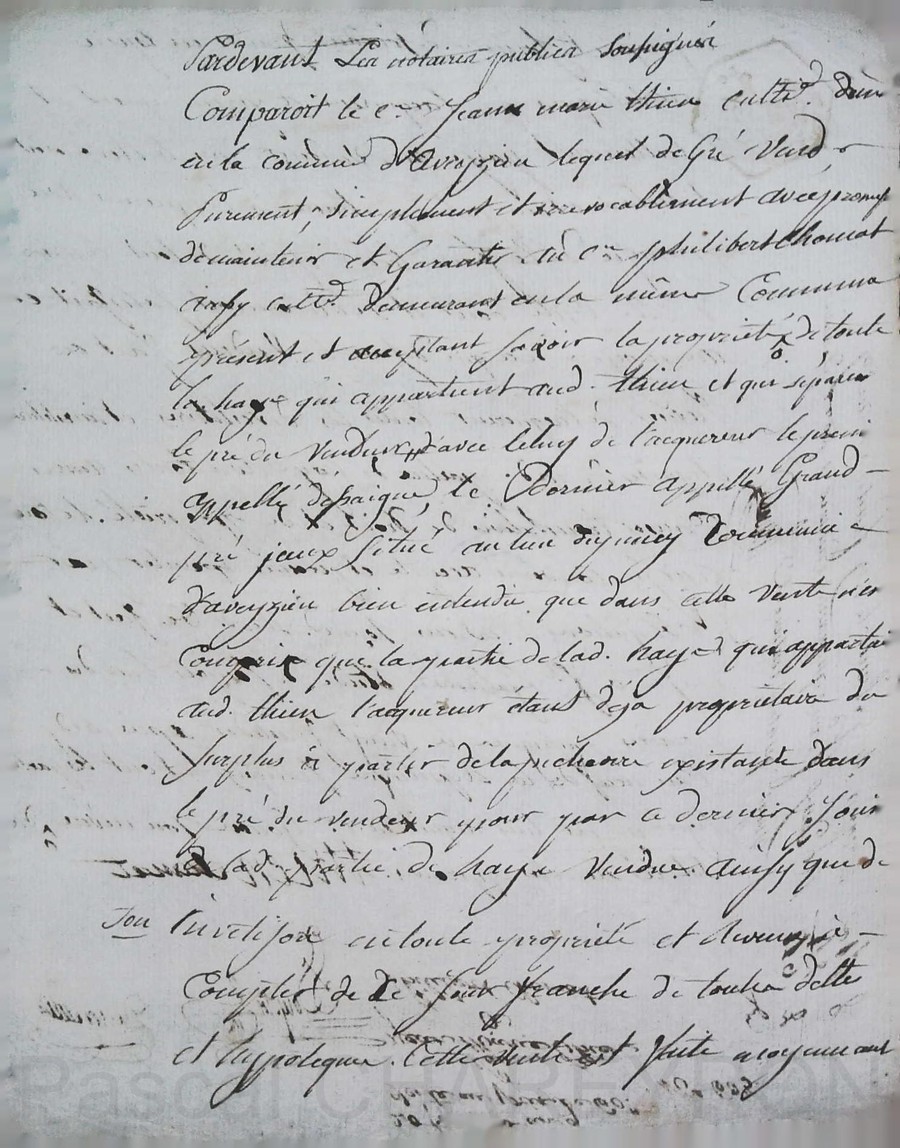 Pardevant Les nôtaires publics soussignés
Comparoit le c.en Jean marie thien cultiv.r dem.t
en la commune d'Aveyzieu lequel de Gré Vend
Purement, simplement et irrevocablement avec promesse
de maintenir et Garantir au c.en philibert Chomat
aussy cult.r demeurant en la même Commune
présent et acceptant savoir la proprieté de toute
la haye qui appartient aud. thien et qui sépare
le pré du vendeur d'avec celuy de l'acquereur le premier
appellé dessaigne le Dernier appellé Grand
pré jeaux situé au lieu Commune
d'aveyzieu bien entendu que dans cette vente n'est
Compris que la partie de lad. haye qui appartient
aud. thien l'acquereur étant déja propriétaire du
surplus à partir de la pichoire existante dans
le pré du vendeur pour par ce dernier jouir
de lad. partie de haye vendue ainsy que de
son
l'invetison en toute propriété et
Compter de ce jour franche de toutes dettes
et hypoteques. Cette vente est faite moyennant
Pascal CHAPERON